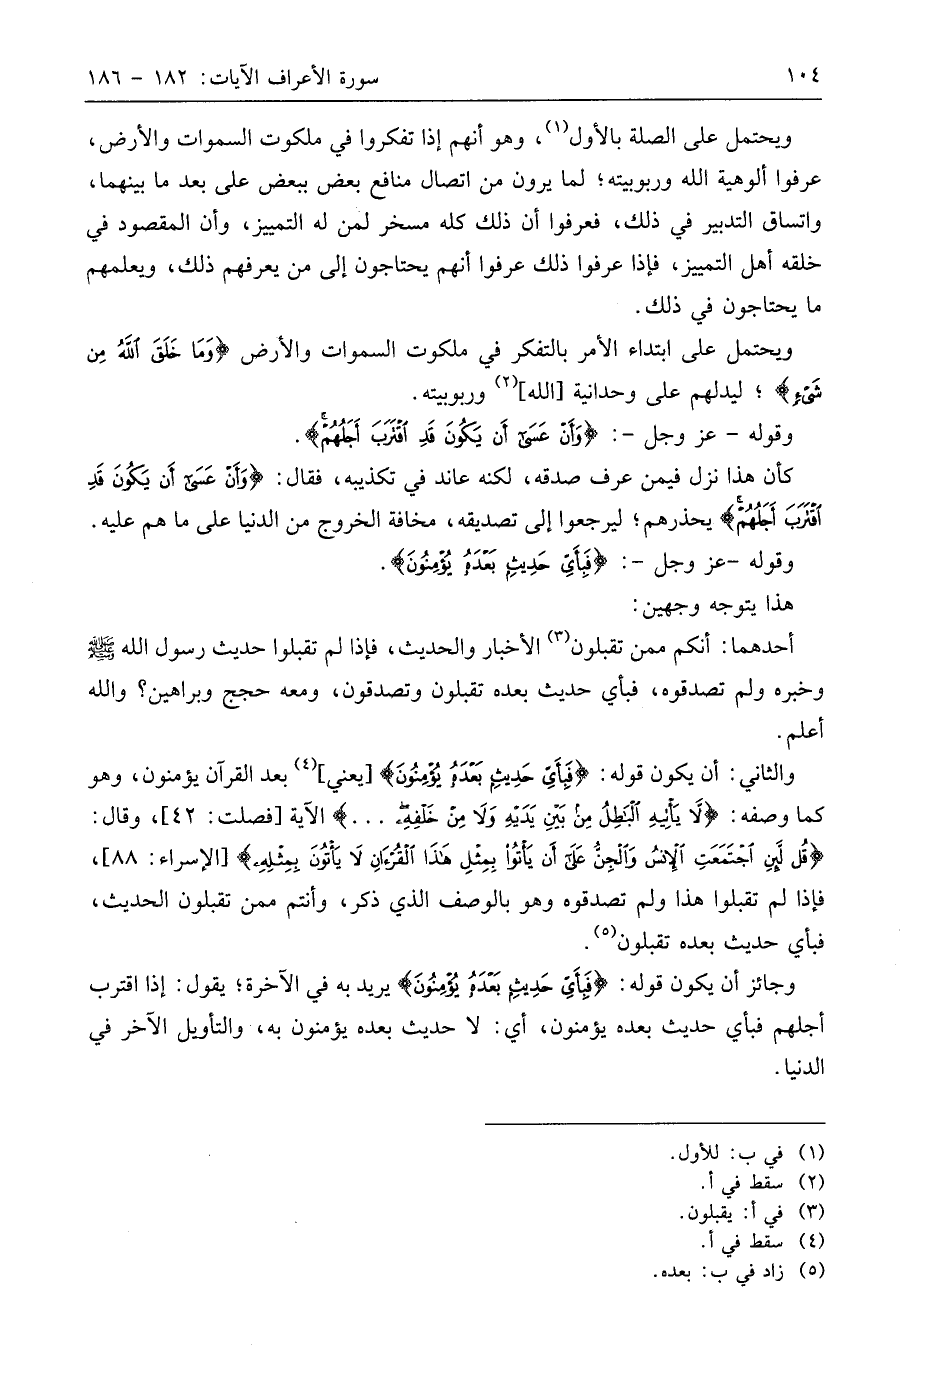 ١٠٤ سورة الأعراف الآيات: ١٨٢ - ١٨٦
ويحتمل على الصلة بالأول(١)، وهو أنهم إذا تفكروا في ملكوت السموات والأرض،
عرفوا ألوهية الله وربوبيته؛ لما يرون من اتصال منافع بعض ببعض على بعد ما بينهما،
واتساق التدبير في ذلك، فعرفوا أن ذلك كله مسخر لمن له التمييز، وأن المقصود في
خلقه أهل التمييز، فإذا عرفوا ذلك عرفوا أنهم يحتاجون إلى من يعرفهم ذلك، ويعلمهم
ما يحتاجون في ذلك.
ويحتمل على ابتداء الأمر بالتفكر في ملكوت السموات والأرض ﴿وَمَا خَلَقَ ٱللَّهُ مِن
شَىْءٍ﴾ ؛ ليدلهم على وحدانية [الله](٢) وربوبيته.
وقوله - عز وجل -: ﴿وَأَنْ عَسَىٰٓ أَن يَكُونَ قَدِ ٱقْتَرَبَ أَجَلُهُمْ﴾.
كأن هذا نزل فيمن عرف صدقه، لكنه عاند في تكذيبه، فقال: ﴿وَأَنْ عَسَىٰٓ أَن يَكُونَ قَدِ
ٱقْتَرَبَ أَجَلُهُمْ﴾ يحذرهم؛ ليرجعوا إلى تصديقه، مخافة الخروج من الدنيا على ما هم عليه.
وقوله -عز وجل -: ﴿فَبِأَىِّ حَدِيثٍۭ بَعْدَهُۥ يُؤْمِنُونَ﴾.
هذا يتوجه وجهين:
أحدهما: أنكم ممن تقبلون(٣) الأخبار والحديث، فإذا لم تقبلوا حديث رسول الله ﷺ
وخبره ولم تصدقوه، فبأي حديث بعده تقبلون وتصدقون، ومعه حجج وبراهين؟ والله
أعلم.
والثاني: أن يكون قوله: ﴿فَبِأَىِّ حَدِيثٍۭ بَعْدَهُۥ يُؤْمِنُونَ﴾ [يعني](٤) بعد القرآن يؤمنون، وهو
كما وصفه: ﴿لَّا يَأْتِيهِ ٱلْبَٰطِلُ مِنۢ بَيْنِ يَدَيْهِ وَلَا مِنْ خَلْفِهِۦ ...﴾ الآية [فصلت: ٤٢]، وقال:
﴿قُل لَّئِنِ ٱجْتَمَعَتِ ٱلْإِنسُ وَٱلْجِنُّ عَلَىٰٓ أَن يَأْتُوا۟ بِمِثْلِ هَٰذَا ٱلْقُرْءَانِ لَا يَأْتُونَ بِمِثْلِهِۦ﴾ [الإسراء: ٨٨]،
فإذا لم تقبلوا هذا ولم تصدقوه وهو بالوصف الذي ذكر، وأنتم ممن تقبلون الحديث،
فبأي حديث بعده تقبلون(٥).
وجائز أن يكون قوله: ﴿فَبِأَىِّ حَدِيثٍۭ بَعْدَهُۥ يُؤْمِنُونَ﴾ يريد به في الآخرة؛ يقول: إذا اقترب
أجلهم فبأي حديث بعده يؤمنون، أي: لا حديث بعده يؤمنون به، والتأويل الآخر في
الدنيا.
(١) في ب: للأول.
(٢) سقط في أ.
(٣) في أ: يقبلون.
(٤) سقط في أ.
(٥) زاد في ب: بعده.